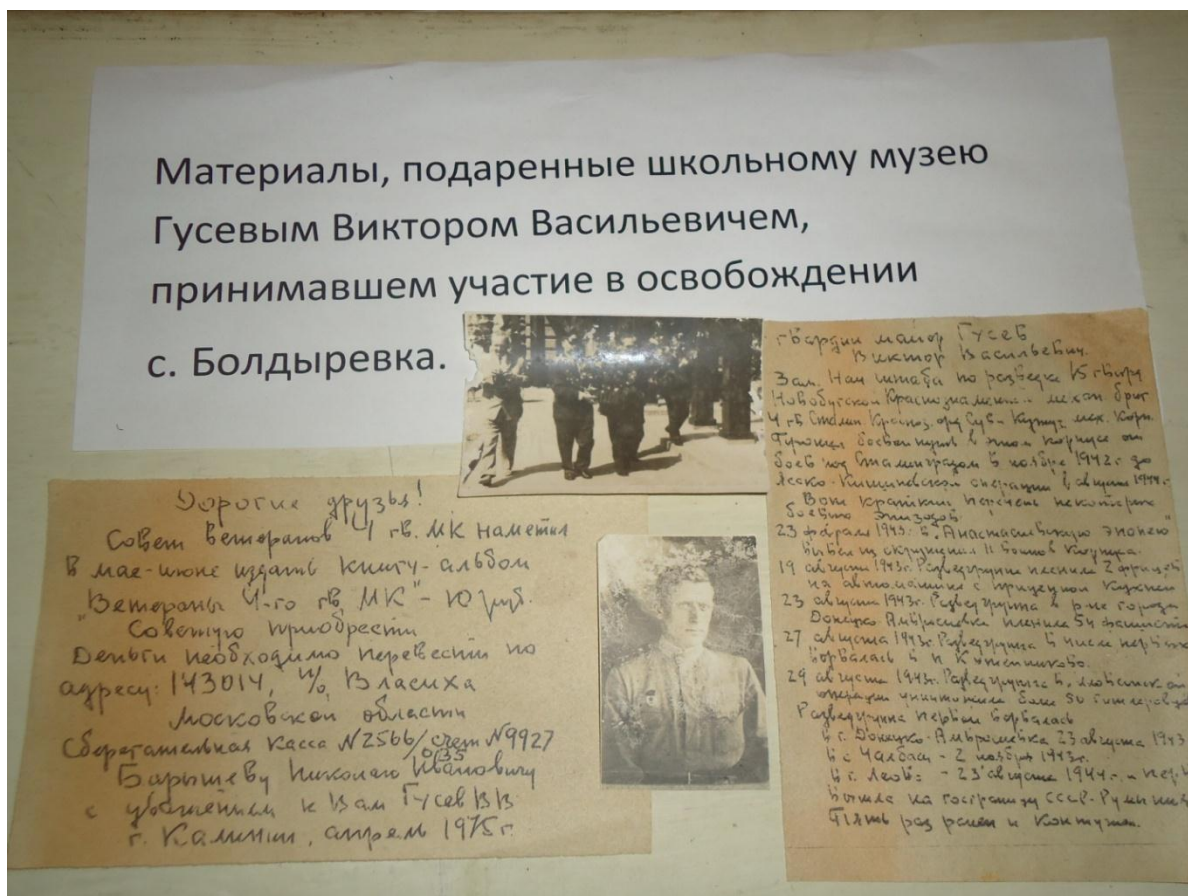 Материалы, подаренные школьному музею
Гусевым Виктором Васильевичем,
принимавшем участие в освобождении
с. Болдыревка.
Дорогие друзья!
Совет ветеранов 4 гв. МК наметил
в мае-июне издать книгу-альбом
"Ветераны 4-го гв. МК" - 10 руб.
Советую приобрести
Деньги необходимо перевести по
адресу: 143014, п/о Власиха
Московской области
Сберегательная касса N2566/0135 счет N9927
Барышеву Николаю Ивановичу
с уважением к Вам Гусев ВВ
г. Калинин, апрель 1975 г.
гвардии майор Гусев
Виктор Васильевич.
Зам. Нач штаба по разведке 15 гвард
Новобугской Краснознаменн. механ. бриг
4 гв Сталин. Красноз. орд Сув- Кутуз мех. Корп.
Прошел боевой путь в этом корпусе от
боев под Сталинградом в ноябре 1942 г. до
Ясско-Кишиневской операции в августе 1944 г.
Вот краткий перечень некоторых
боевых эпизодов.
23 февраля 1943 г. в "Анастасиевскую эпопею"
вывел из окружения 11 бойцов
19 августа 1943 г. Разведгруппа пленила 2 фрицев
на автомашине с прицепной кухней
23 августа 1943 г. Разведгруппа в р-не города
Донецко-Амвросиевка пленила 54 фашиста
27 августа 1943 г. Разведгруппа в числе первых
ворвалась в п. Кутейниково.
29 августа 1943 г. Разведгруппа в
операции уничтожила более 50 гитлеровцев
Разведгруппа первой ворвалась
в г. Донецко-Амвросиевка 23 августа 1943
в с Чалбасы - 2 ноября 1943 г.
в г. Леово - 23 августа 1944 г. и
вышла на госграницу СССР-Румыния
Пять раз ранен и контужен.